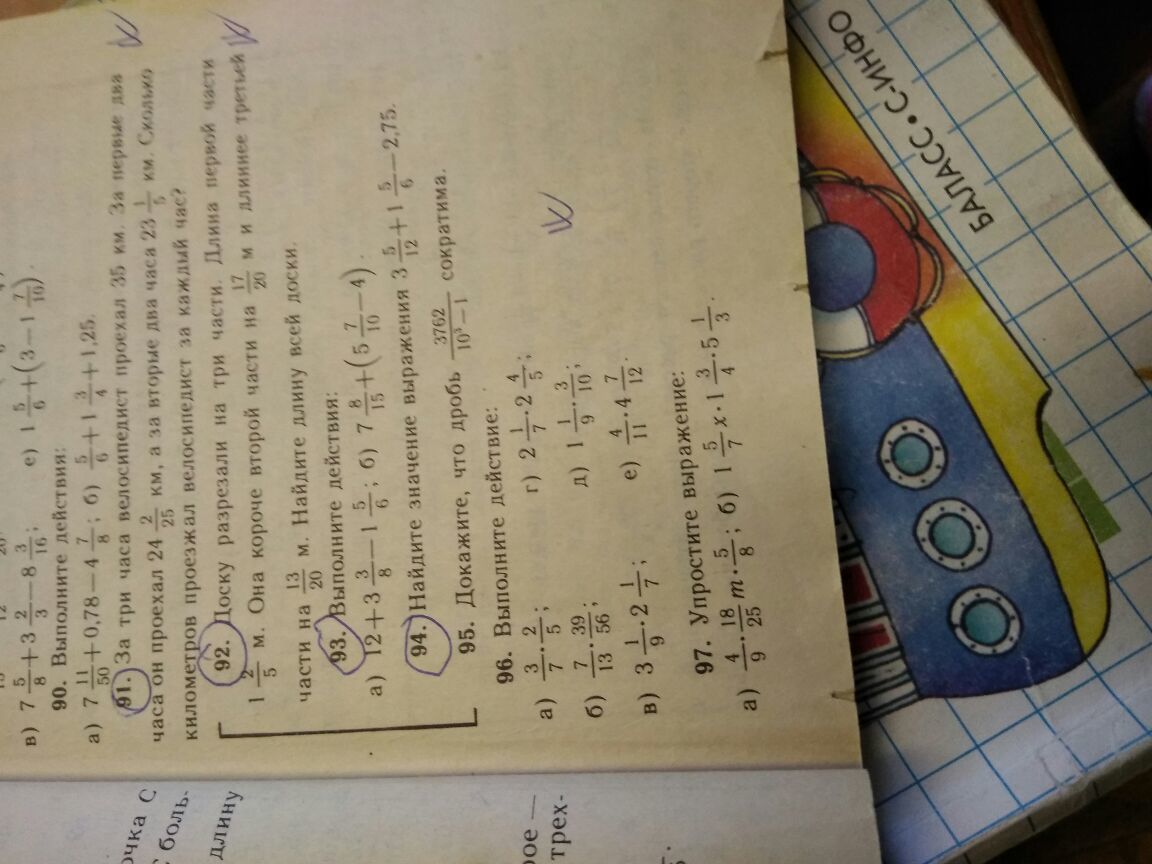 в) 7 5/8 + 3 2/3 − 8 3/16; е) 1 5/6 + (3 − 1 7/10).
90. Выполните действия:
а) 7 11/50 + 0,78 − 4 7/8; б) 5/6 + 1 3/4 + 1,25.
91. За три часа велосипедист проехал 35 км. За первые два
часа он проехал 24 2/25 км, а за вторые два часа 23 1/5 км. Сколько
километров проезжал велосипедист за каждый час?
92. Доску разрезали на три части. Длина первой части
1 2/5 м. Она короче второй части на 17/20 м и длиннее третьей
части на 13/20 м. Найдите длину всей доски.
93. Выполните действия:
а) 12 + 3 3/8 − 1 5/6; б) 7 8/15 + (5 7/10 − 4).
94. Найдите значение выражения 3 5/12 + 1 5/6 − 2,75.
95. Докажите, что дробь 3762/(10³ − 1) сократима.
96. Выполните действие:
а) 3/7 · 2/5; г) 2 1/7 · 2 4/5;
б) 7/13 · 39/56; д) 1 1/9 · 3/10;
в) 3 1/9 · 2 1/7; е) 4/11 · 4 7/12.
97. Упростите выражение:
а) 4/9 · 18/25 m · 5/8; б) 1 5/7 x · 1 3/4 · 5 1/3.
очка С
боль-
длину
рое —
трех-
БАЛАСС • С-ИНФО